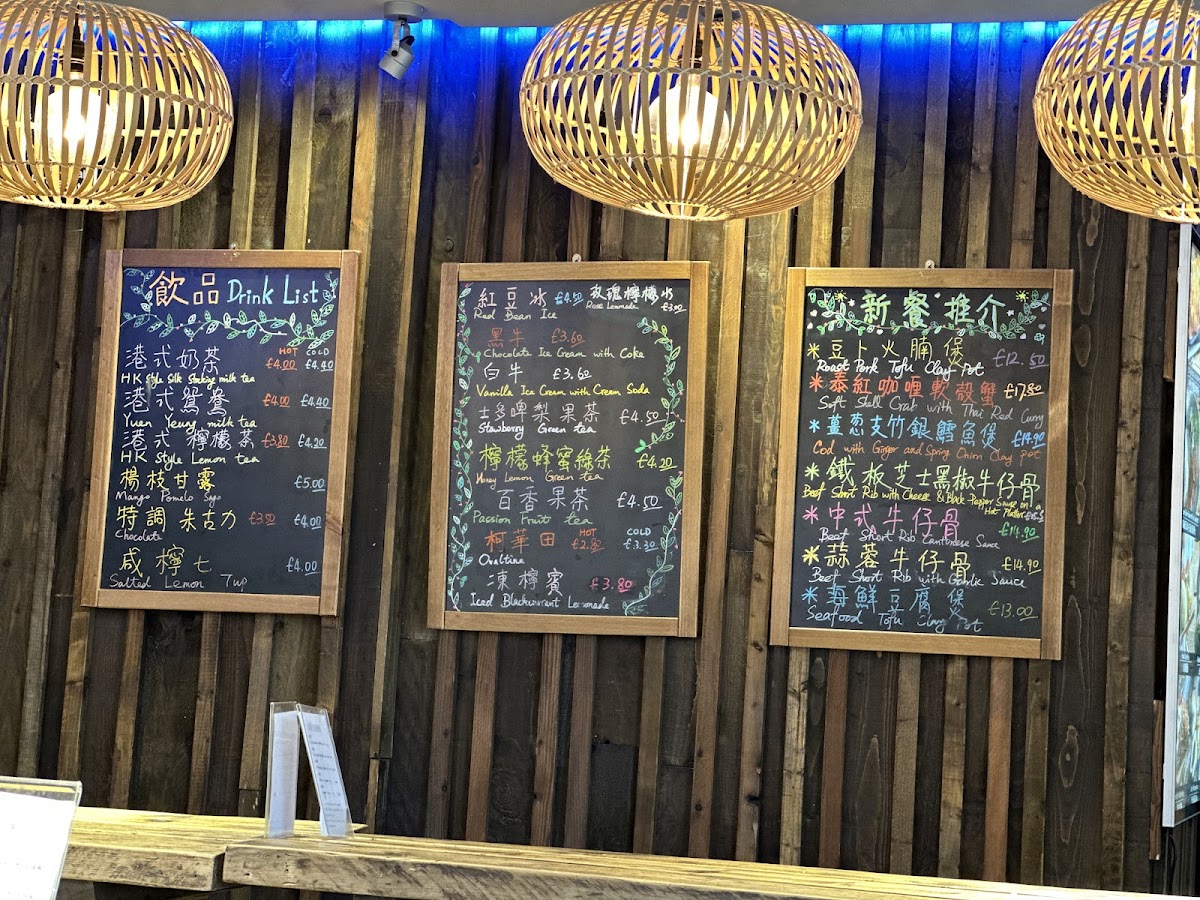 飲品 Drink List
HOT COLD
港式奶茶 £4.00 £4.40
HK Style Silk Stocking milk tea
港式鴛鴦 £4.00 £4.40
Yuen Yeung milk tea
港式 檸檬茶 £3.80 £4.20
HK Style Lemon tea
楊枝甘露 £5.00
Mango Pomelo Sago
特調 朱古力 £3.50 £4.00
Chocolate
咸檸七 £4.00
Salted Lemon 7up
紅豆冰 £4.50 玫瑰檸檬冰
Red Bean Ice Rose Lemonade £3.00
黑牛 £3.60
Chocolate Ice Cream with Coke
白牛 £3.60
Vanilla Ice Cream with Cream Soda
士多啤梨果茶 £4.50
Stawberry Green tea
檸檬蜂蜜綠茶 £4.20
Honey Lemon Green tea
百香果茶 £4.50
Passion Fruit tea
HOT COLD
柯華田 £2.80 £3.30
Ovaltine
凍檸賓 £3.80
Iced Blackcurrant Lemonade
新餐推介
*豆卜火腩煲 £12.50
Roast Pork Tofu Clay Pot
*泰紅咖喱軟殼蟹 £17.80
Soft Shell Crab with Thai Red Curry
*薑葱支竹銀鱈魚煲 £14.90
Cod with Ginger and Spring Onion Clay pot
*鐵板芝士黑椒牛仔骨
Beef Short Rib with Cheese & Black Pepper Sauce on a
Hot Platter
*中式牛仔骨 £14.90
Beef Short Rib Cantonese Sauce
*蒜蓉牛仔骨 £14.90
Beef Short Rib with Garlic Sauce
*海鮮豆腐煲 £13.00
Seafood Tofu Clay Pot